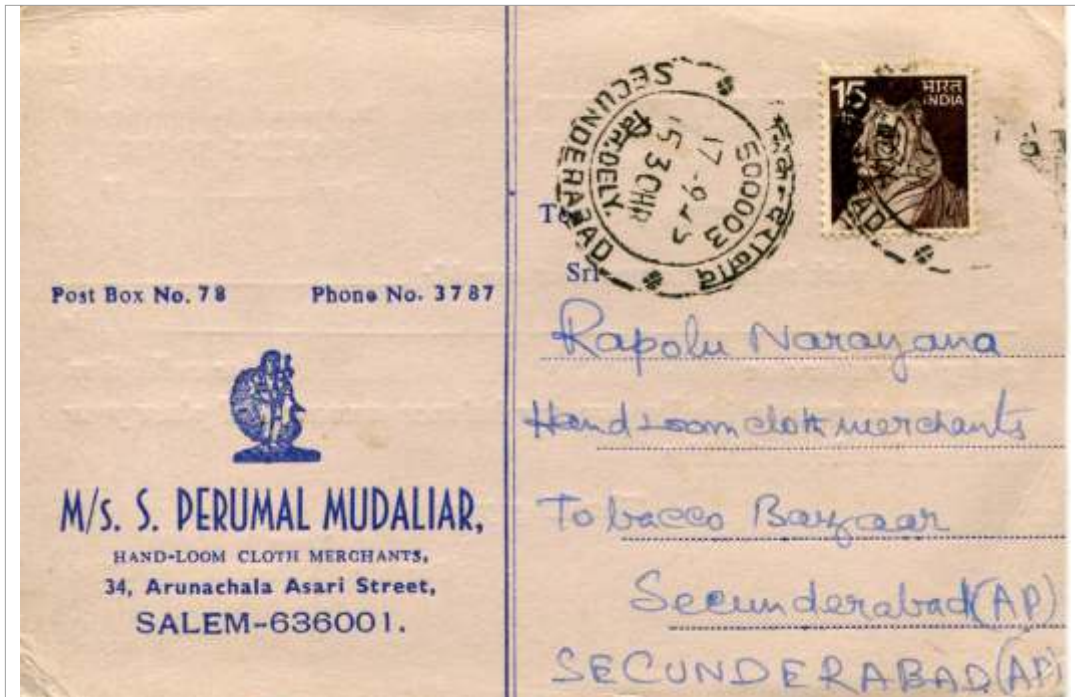 Post Box No. 78 Phone No. 3787
M/s. S. PERUMAL MUDALIAR,
HAND-LOOM CLOTH MERCHANTS,
34, Arunachala Asari Street,
SALEM-636001.
15 भारत
INDIA
SECUNDERABAD
DELY.
1530HR
500003
To
Sri
Rapolu Narayana
Hand Loom cloth merchants
Tobacco Bazaar
Secunderabad (AP)
SECUNDERABAD (AP)